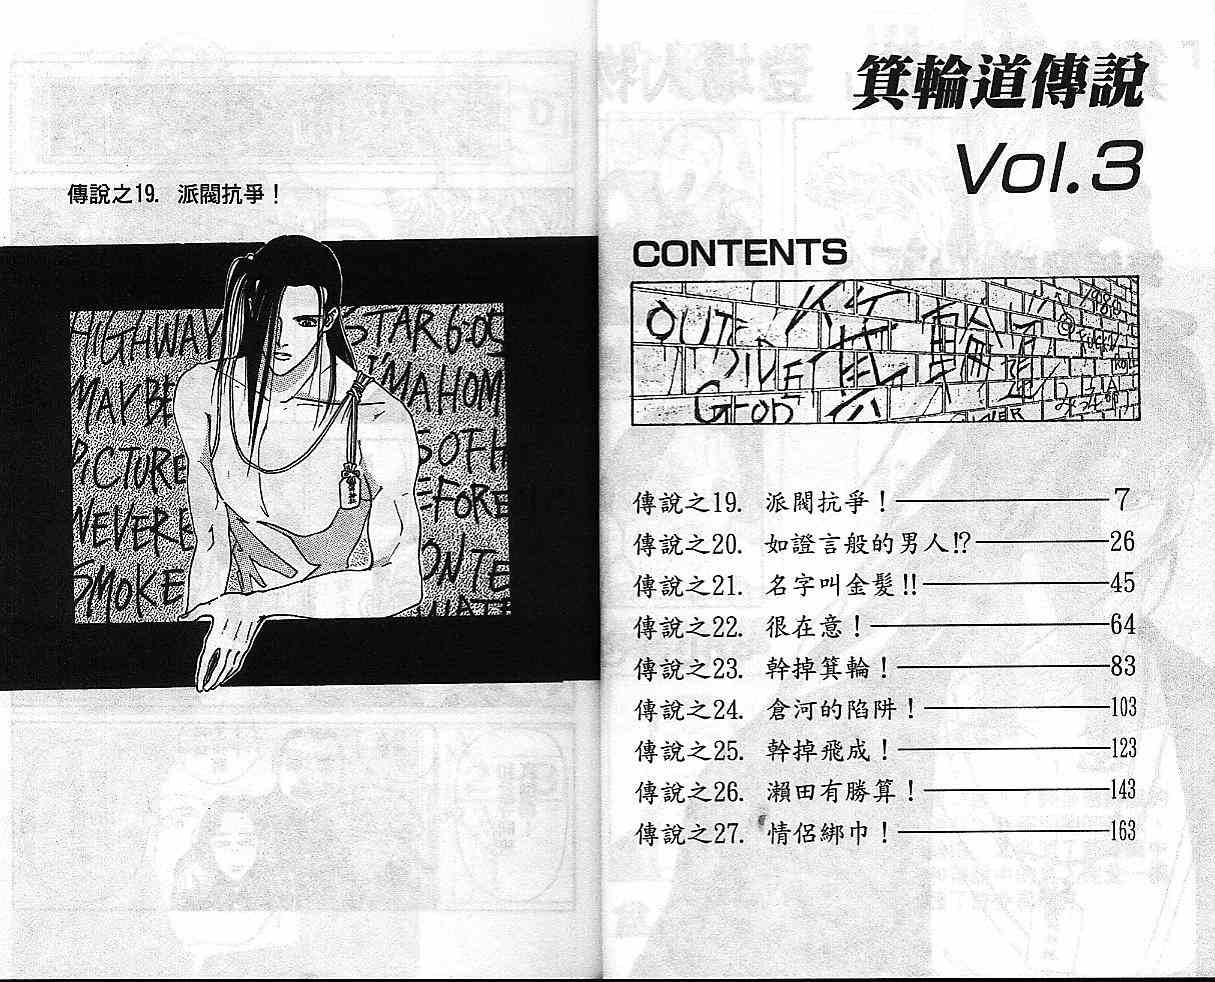 傳說之19. 派閥抗爭！
HIGHWAY STAR 6:05
MAYBE I'M A HOM
PICTURE SOFH
NEVERE EFORE
SMOKE ONTE
箕輪道傳說
Vol.3
CONTENTS
OUT
SIDE
箕輪道
傳說之19. 派閥抗爭！ 7
傳說之20. 如證言般的男人!? 26
傳說之21. 名字叫金髮!! 45
傳說之22. 很在意！ 64
傳說之23. 幹掉箕輪！ 83
傳說之24. 倉河的陷阱！ 103
傳說之25. 幹掉飛成！ 123
傳說之26. 瀨田有勝算！ 143
傳說之27. 情侶綁巾！ 163